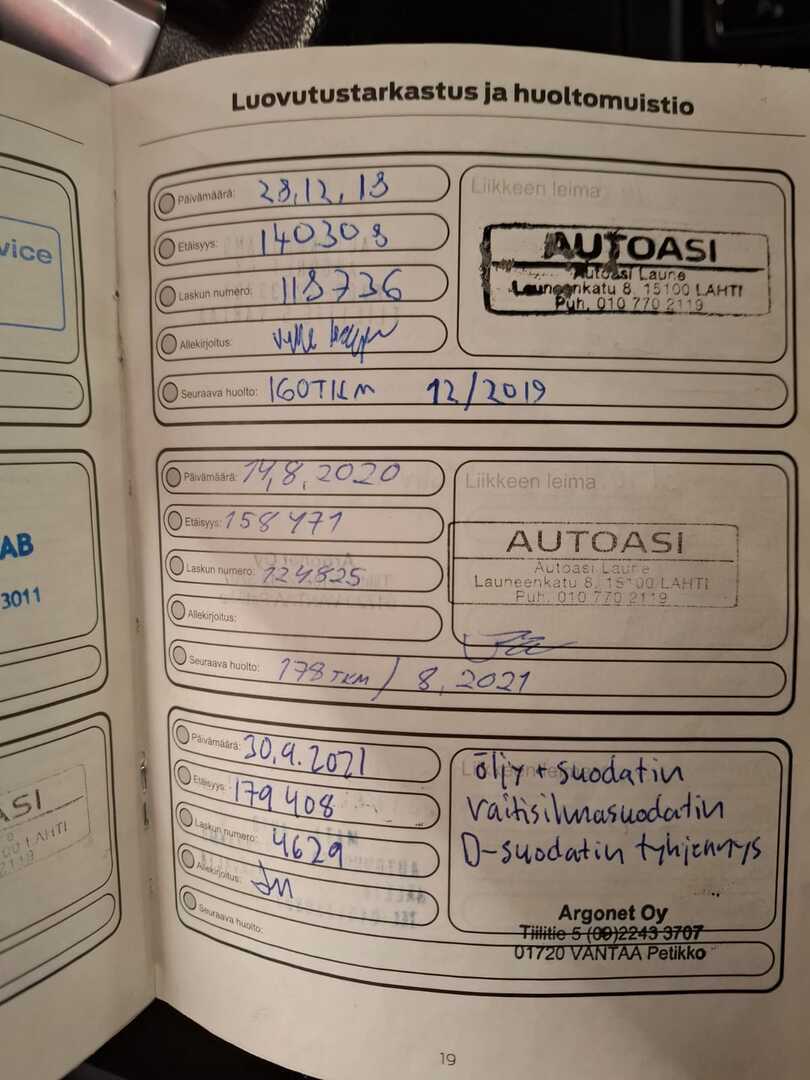 Luovutustarkastus ja huoltomuistio
vice
Päivämäärä: 28.12.18
Etäisyys: 140308
Laskun numero: 118736
Allekirjoitus:
Seuraava huolto: 160TKM 12/2019
Liikkeen leima
AUTOASI
Autoasi Laune
Launeenkatu 8, 15100 LAHTI
Puh. 010 770 2119
AB
3011
Päivämäärä: 14,8,2020
Etäisyys: 158471
Laskun numero: 124825
Allekirjoitus:
Seuraava huolto: 178TKM / 8,2021
Liikkeen leima
AUTOASI
Autoasi Laune
Launeenkatu 8, 15100 LAHTI
Puh. 010 770 2119
ASI
00 LAHTI
2119
Päivämäärä: 30.9.2021
Etäisyys: 179408
Laskun numero: 4629
Allekirjoitus:
Seuraava huolto:
öljy + suodatin
raitisilmasuodatin
D-suodatin tyhjennys
Argonet Oy
Tiilitie 5 (09)2243 3707
01720 VANTAA Petikko
19